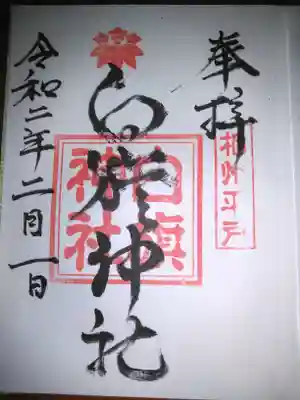 奉拝
相州江ノ戸
白旗神社
白旗神社
令和二年二月一日